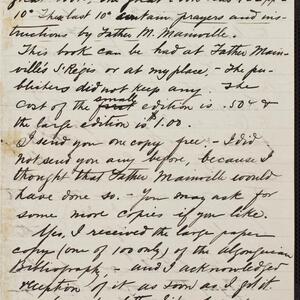 10° This last 10° contain prayers and ins-
tructions by Father M. Mainville.
This book can be had at Father Main-
ville's St Regis or at my place, - The pu-
blishers did not keep any. The
cost of the small first edition is .50¢ &
the large edition is $1.00.
I send you one copy free - I did
not send you any before, because I
thought that Father Mainville would
have done so. - You may ask for
some more copies if you like.
Yes, I received the large paper
copy (one of 100 only) of the algonquian
Bibliograph, - and I acknowledged
reception of it as soon as I got it.